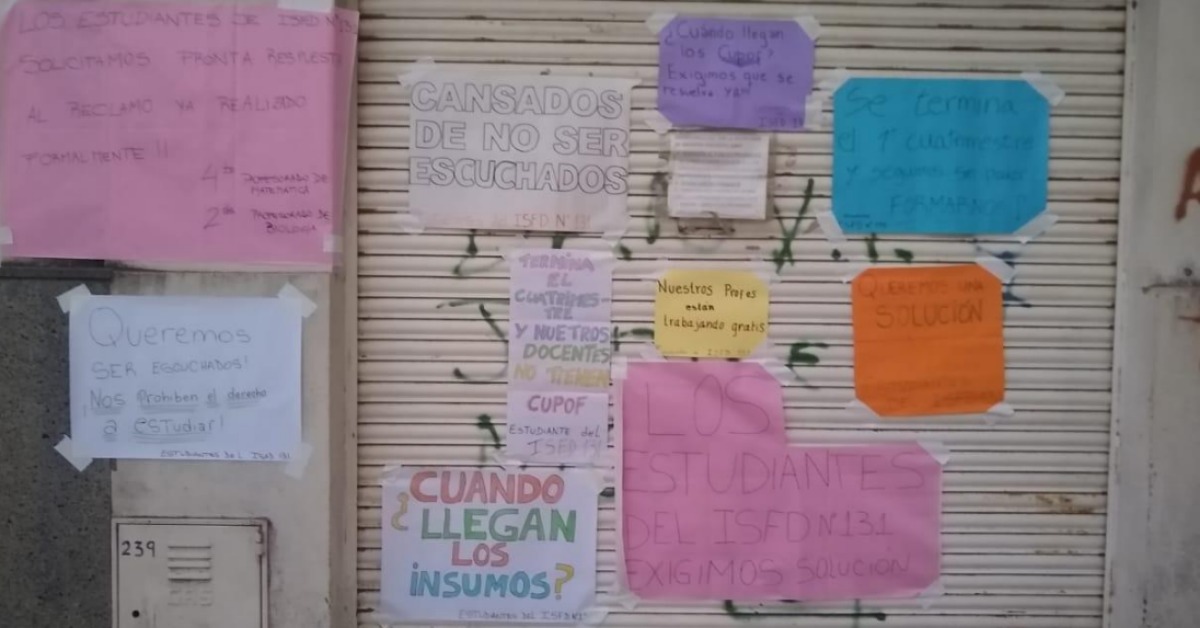 LOS ESTUDIANTES DE ISFD N°131
SOLICITAMOS PRONTA RESPUESTA
AL RECLAMO YA REALIZADO
FORMALMENTE !!
4to PROFESORADO DE
MATEMÁTICA
2do PROFESORADO DE
BIOLOGÍA
Queremos
SER ESCUCHADOS!
Nos Prohiben el derecho
a estudiar!
ESTUDIANTES DEL ISFD 131
239
CANSADOS
DE NO SER
ESCUCHADOS
ISFD N°131
¿Cuándo llegan
los Cupof?
Exigimos que se
resuelva YA!!
ISFD 131
Se termina
el 1° cuatrimestre
y seguimos sin poder
FORMARNOS!
TERMINA
EL
CUATRIMES-
TRE
Y NUETROS
DOCENTES
NO TIENEN
CUPOF
ESTUDIANTE del
ISFD 131
Nuestros Profes
están
trabajando gratis
ISFD 131
QUEREMOS UNA
SOLUCIÓN
¿CUANDO
LLEGAN
LOS
iNSUMOS?
ESTUDIANTES DEL ISFD N°131
LOS
ESTUDIANTES
DEL ISFD N°131
EXIGIMOS SOLUCIÓN